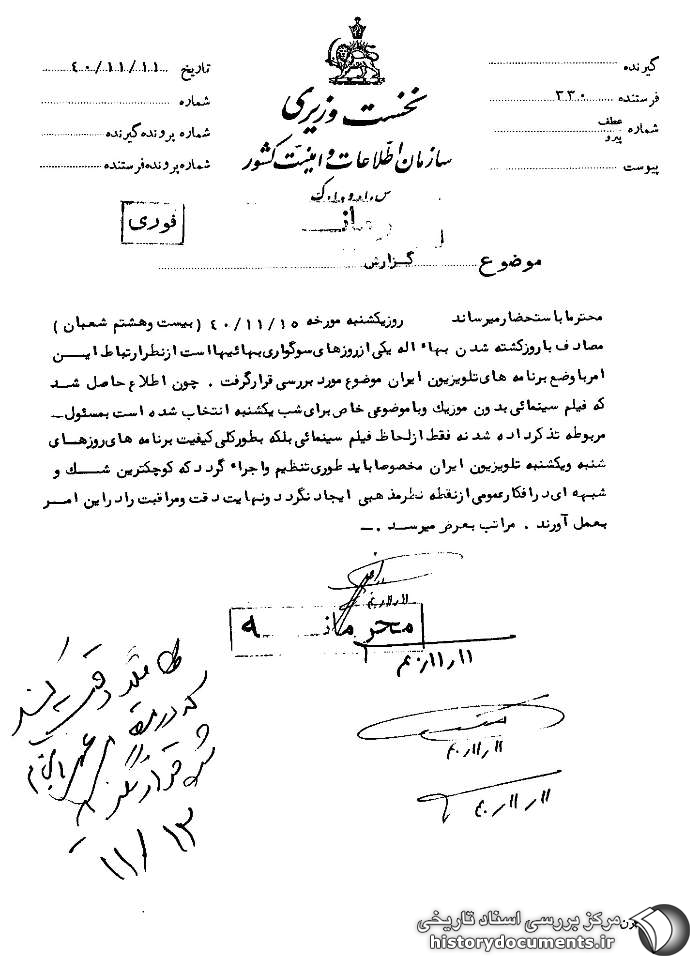 گیرنده
فرستنده ۳۳۰
شماره عطف پیرو
پیوست
نخست وزیری
سازمان اطلاعات و امنیت کشور
س.ا.و.ا.ک
تاریخ ۴۰/۱۱/۱۱
شماره
شماره پرونده گیرنده
شماره پرونده فرستنده
فوری
موضوع گزارش
محترما باستحضار میرساند روز یکشنبه مورخه ۴۰/۱۱/۱۵ (بیست وهشتم شعبان)
مصادف با روز کشته شدن بهاء اله یکی از روزهای سوگواری بهائیها است از نظر ارتباط این
امر با وضع برنامه های تلویزیون ایران موضوع مورد بررسی قرار گرفت . چون اطلاع حاصل شد
که فیلم سینمائی بدون موزیك وبا موضوعی خاص برای شب یکشنبه انتخاب شده است بمسئول
مربوطه تذکر داده شد نه فقط از لحاظ فیلم سینمائی بلکه بطور کلی کیفیت برنامه های روزهای
شنبه ویکشنبه تلویزیون ایران مخصوصا باید طوری تنظیم واجراء گردد که کوچکترین شك و
شبهه ای در افکار عمومی از نقطه نظر مذهبی ایجاد نگردد ونهایت دقت ومراقبت را در این امر
بعمل آورند . مراتب بعرض میرسد .
۱۱ر۱۱ر۴۰
محرمانه
۱۱ر۱۱ر۴۰
۱۱ر۱۱ر۴۰
۱۱ر۱۱ر۴۰
کاملا دقت کنند
که در
قرار نگیرند
۱۱/۱۳
مرکز بررسی اسناد تاریخی
historydocuments.ir